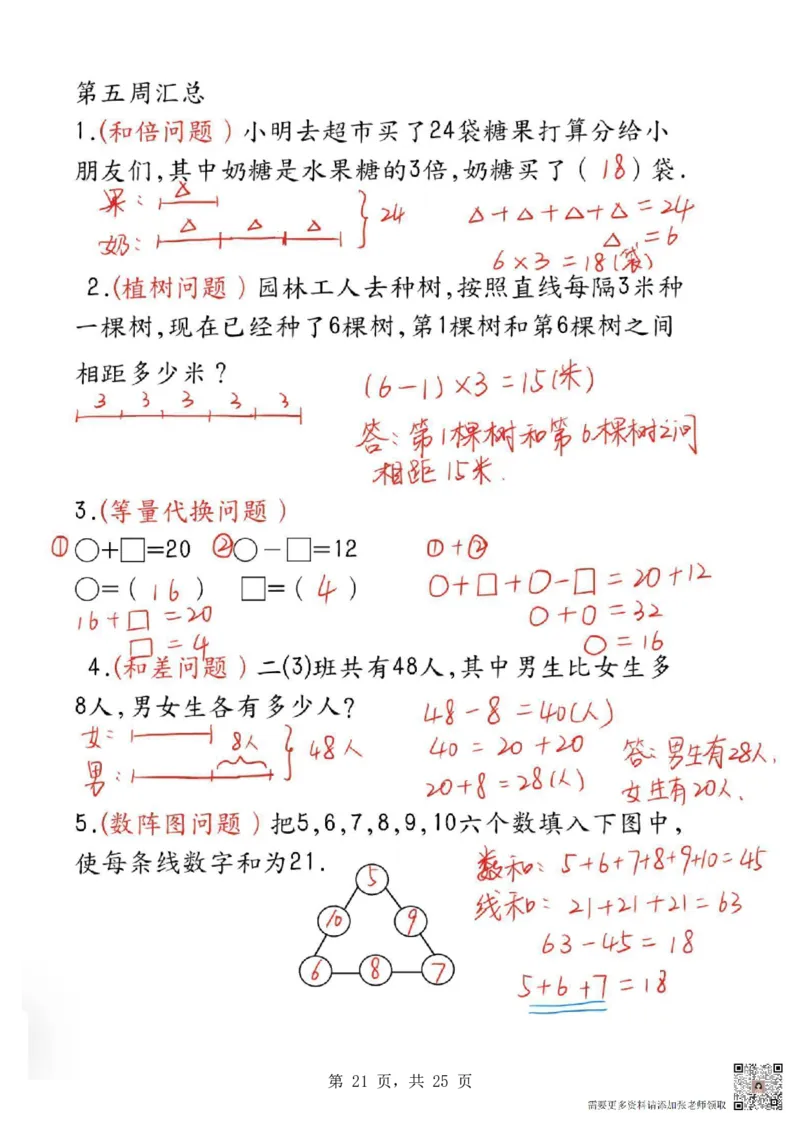 第五周汇总
1.(和倍问题)小明去超市买了24袋糖果打算分给小
朋友们,其中奶糖是水果糖的3倍,奶糖买了(18)袋.
果: △
奶: △ △ △
24
△+△+△+△=24
△=6
6×3=18(袋)
2.(植树问题)园林工人去种树,按照直线每隔3米种
一棵树,现在已经种了6棵树,第1棵树和第6棵树之间
相距多少米?
3 3 3 3 3
(6-1)×3=15(米)
答:第1棵树和第6棵树之间
相距15米.
3.(等量代换问题)
①○+□=20 ②○-□=12
○=(16) □=(4)
16+□=20
□=4
①+②
○+□+○-□=20+12
○+○=32
○=16
4.(和差问题)二(3)班共有48人,其中男生比女生多
8人,男女生各有多少人?
女:
男: 8人
48人
48-8=40(人)
40=20+20
20+8=28(人)
答:男生有28人,
女生有20人.
5.(数阵图问题)把5,6,7,8,9,10六个数填入下图中,
使每条线数字和为21.
5
10 9
6 8 7
数和:5+6+7+8+9+10=45
线和:21+21+21=63
63-45=18
5+6+7=18
第 21 页，共 25 页
需要更多资料请添加张老师领取